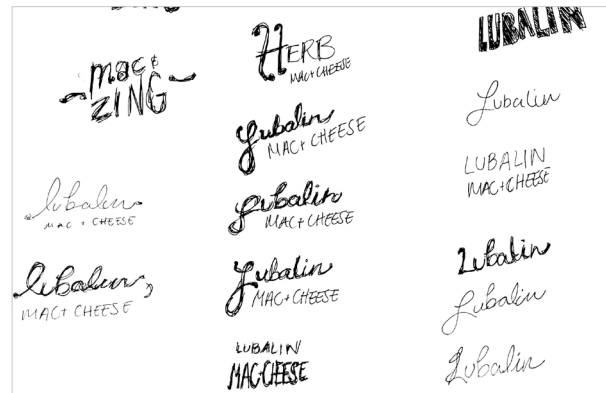 mac &
ZING
lubalin
MAC + CHEESE
lubalin
MAC + CHEESE
HERB
MAC + CHEESE
Lubalin
MAC + CHEESE
Lubalin
MAC + CHEESE
Lubalin
MAC + CHEESE
LUBALIN
MAC+CHEESE
LUBALIN
Lubalin
LUBALIN
MAC + CHEESE
Lubalin
Lubalin
Lubalin